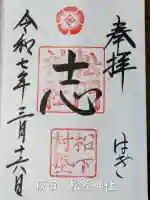 奉拝
はぎ
志
松下村塾
令和七年三月十六日
萩市 松陰神社